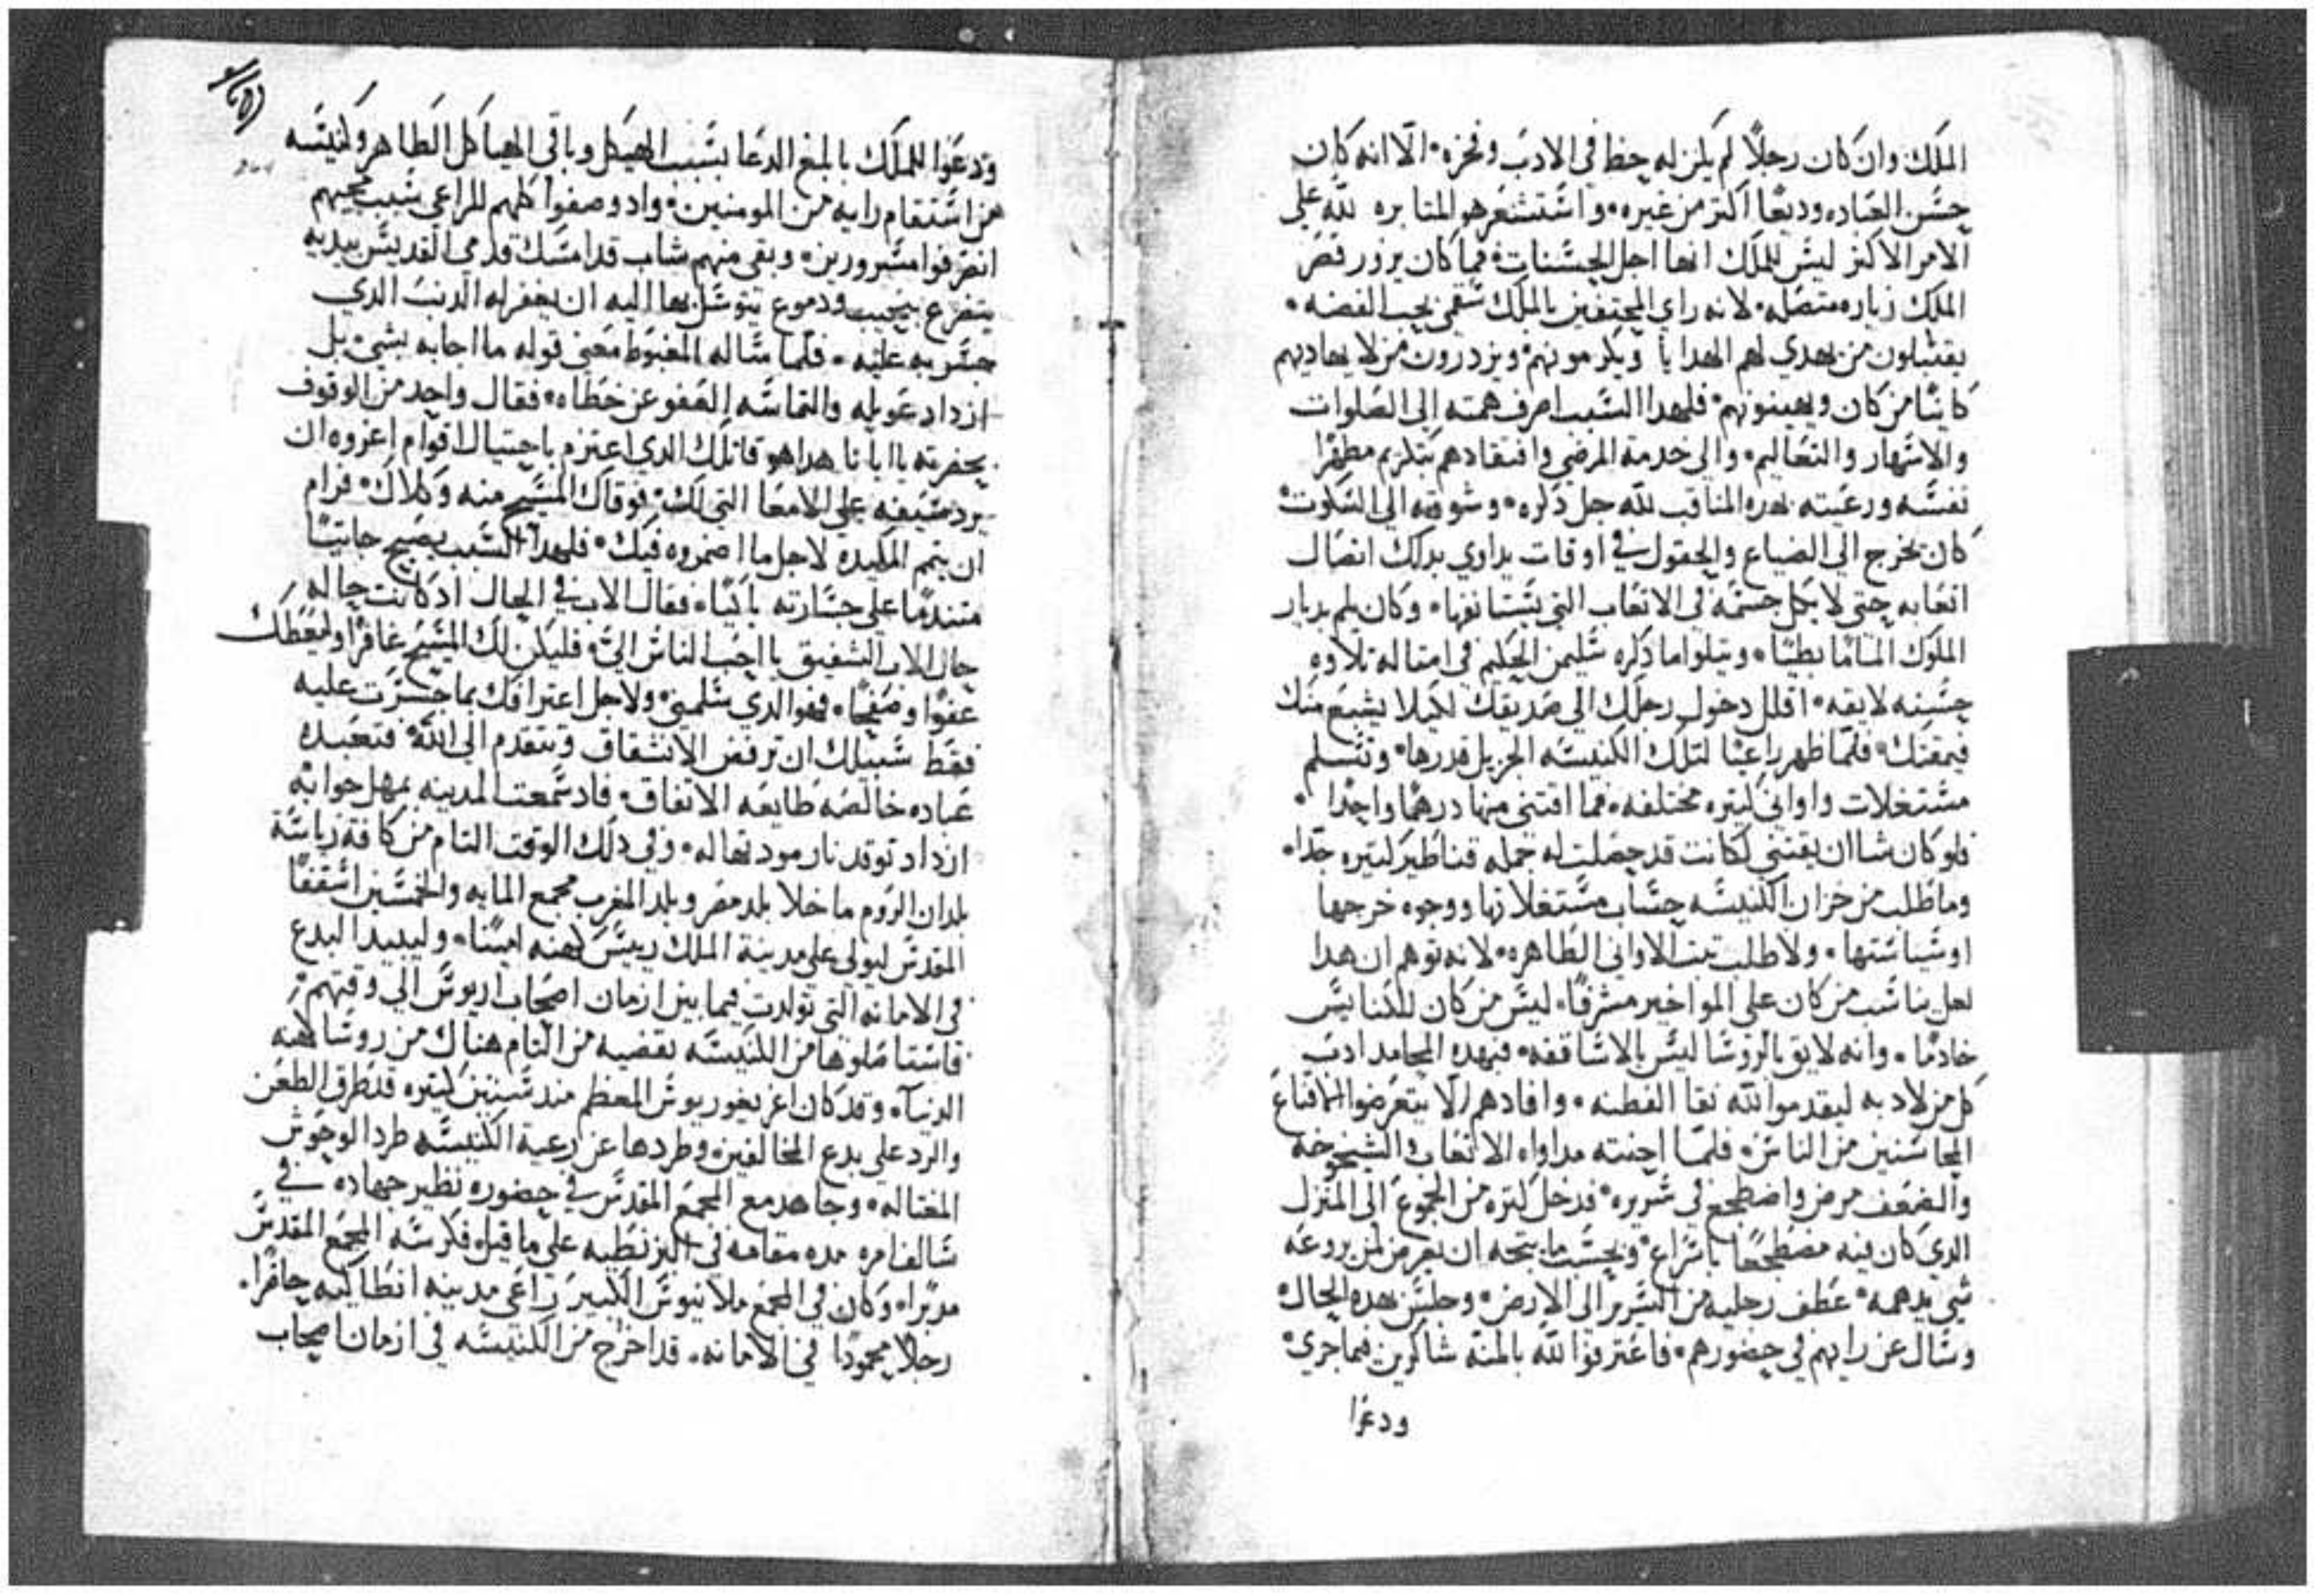 الملك وان كان رجلاً لم يكن له حظ في الادب وفخره • الّا انه كان
حسن العباده وديعًا اكثر من غيره • واستشعر هو المثابره لله علي
الامر الاكثر ليس للملك انها اجل الحسنات • فما كان يزور قصر
الملك زياره متصله • لانه راي المحتفين بالملك شقي يحب الفضه •
يقتبلون من يهدي لهم الهدايا ويكرمونهم • ويزدرون من لا يهاديهم
كاينًا من كان ويهينونهم • فلهدا السبب اصرف همته الي الصلوات
والاسهار والتعاليم • والي خدمة المرضي وافتقادهم بتكريم مطهرًا
نفسه ورعيته بهده المناقب لله جل ذكره • وشوقه الي السكوت
كان يخرج الي الضياع والحقول في اوقات يداوي بدلك اتصال
اتعابه حتي لا يكل جسمه في الاتعاب التي يستانفها • وكان يلم بديار
الملوك المامًا بطيًا • ويتلوا ما ذكره سليمن الحكيم في امتاله تلاوه
حسنه لايقه • اقلل دخول رجلك الي صديقك لكيلا يشبع منك
فيمقتك • فلمّا ظهر راعيًا لتلك الكنيسه الجزيل قدرها • وتسلم
مستغلات واواني كتيره مختلفه • مما اقتني منها درهمًا واحدًا •
فلو كان شا ان يقتني لكانت قد حصلت له جمله قناطير كتيره جدًا •
وما طلب من خزان الكنيسه حساب مستغلاتها ووجوه خرجها
او سياستها • ولا طلب تبت الاواني الطاهره • لانه توهم ان هدا
لعل يناسب من كان علي المواخير مشرفًا • ليس من كان للكنايس
خادمًا • وانه لايق بالروسا ليس بالاساقفه • فبهده المحامد ادب
كل من لاد به ليقدموا لله نقا الفطنه • وافادهم الّا يتعرضوا
من الناس • فلمّا احنته مداواه الاتعاب والشيخوخه
والضعف مرض واضطجع في سريره • فدخل كتره من الجموع الي المنزل
الدي كان فيه مضطجعًا باسراع • وبحسب ما يتجه ان يعرض لمن يروعه
شي يدهمه • عطف رجليه من السرير الي الارض • وجلس بهده الحال
وسال عن رايهم في حضورهم • فاعترفوا لله بالمنه شاكرين فيما جري
ودعوا
ودعوا للملك بابلغ الدعا بسبب الهيكل وباقي الهياكل الطاهر وكنيسه
من استقام رايه من المومنين • واد وصفوا كلهم للراعي سبب مجيهم
انصرفوا مسرورين • وبقي منهم شاب قد امسك قدمي القديس بيديه
يتضرع بنحيب ودموع يتوسل بها اليه ان يغفر له الدنب الدي
جسر به عليه • فلمّا ساله المغبوط معني قوله ما اجابه بشي • بل
ازداد عويله والتماسه العفو عن خطاه • فقال واحد من الوقوف
بحضرته يا ابانا هدا هو قاتلك الدي اعتزم باحتيال اقوام اغروه ان
يرد سيفه علي الامعا التي لك • فوقاك المسيح منه وكلاك • فرام
ان يتمم المكيده لاجل ما اضمروه فيك • فلهدا السبب يصيح جاتيًا
متندمًا علي جسارته باكيًا • فقال الاب في الحال اد كانت حاله
حال الاب الشفيق يا احب الناس اليّ • فليكن لك المسيح غافرًا وليعطك
عفوًا وصفحًا • فهو الدي سلمني • ولاجل اعترافك بما جسرت عليه
فقط سبيلك ان ترفض الانشقاق وتتقدم الي الله • فتعبده
عباده خالصه طايعه الاتفاق • فاد سمعت المدينه بمهل جوابه
ازداد توقد نار مودتها له • وفي دلك الوقت التام من كافة رياسة
بلدان الروم ما خلا بلد مصر وبلد المغرب مجمع المايه والخمسين اسقفًا
المقدس ليولي علي مدينة الملك رييس كهنه امينًا • وليبيد البدع
في الامانه التي تولدت فيما بين ازمان اصحاب اريوس الي وقتهم •
فاستاصلوها من الكنيسه بقضيه من التام هناك من روسا كهنه
الدنيا • وقد كان اغريغوريوس المعظم مند سنين كتيره قد طرق الطعن
والرد علي بدع المخالفين • وطردها عن رعية الكنيسه طرد الوحوش
المغتاله • وجاهد مع المجمع المقدس في حضوره نظير جهاده في
سالف امره مده مقامه في البزنطيه علي ما قيل • فكرسه المجمع المقدس
مدبرًا • وكان في المجمع ملاتيوس الكبير راعي مدينه انطاكيه حاضرًا •
رجلاً محمودًا في الامانه • قد اخرج من الكنيسه في ازمان اصحاب